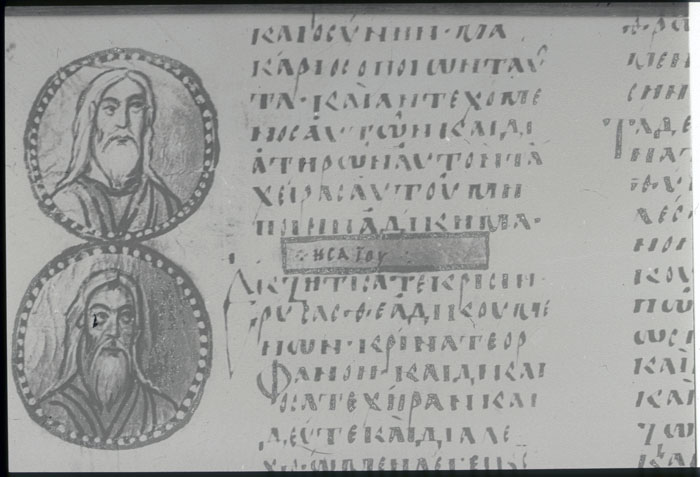 ΚΑΙΟCΥΝΗΝ · ΜΑ
ΚΑΡΙΟC Ο ΠΟΙΩΝ ΤΑΥ
ΤΑ · ΚΑΙ ΑΝΤΕΧΟΜΕ
ΝΟC ΑΥΤΩΝ ΚΑΙ ΔΙ
ΑΤΗΡΩΝ ΑΥΤΟΥ ΤΑ
ΧΕΙΡΑC ΑΥΤΟΥ ΜΗ
ΠΟΙΕΙΝ ΑΔΙΚΗΜΑ ·
ΗCΑΪΟΥ
ΕΚΖΗΤΗCΑΤΕ ΚΡΙCΙΝ ·
ΡΥCΑCΘΕ ΑΔΙΚΟΥΜΕ
ΝΩΝ · ΚΡΙΝΑΤΕ ΟΡ
ΦΑΝΟΝ · ΚΑΙ ΔΙΚΑΙ
ΩCΑΤΕ ΧΗΡΑΝ ΚΑΙ
ΔΕΥΤΕ ΚΑΙ ΔΙΑΛΕ
ΜΕΝ
CΗΝ
ΤΑΔΕ
ΝΑΤ
ΛΕC
ΝΟΝ
ΚΟΥ
ΠΩ
ΩC
ΚΑΙ
ΚΑΙ
ΚΑΙ